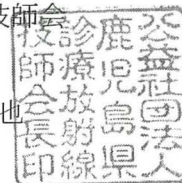 技師会
也
公益社団法人
鹿児島県
診療放射線
技師会長印